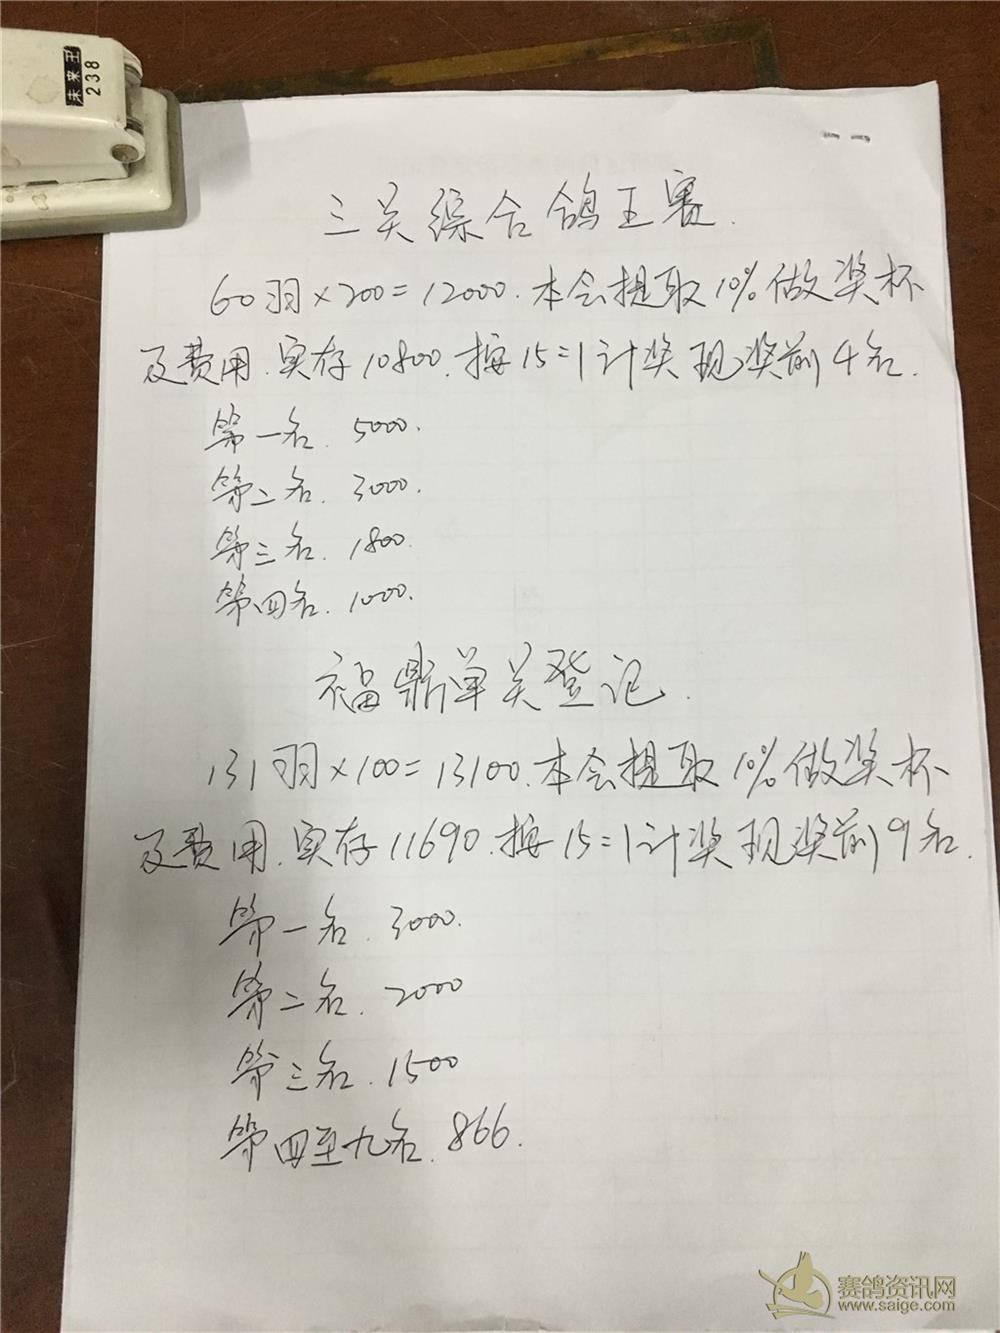 未来王
238
三关综合鸽王赛.
60羽×200=12000.本会提取10%做奖杯
及费用.实存10800.按15=1计奖现奖前4名.
第一名.5000.
第二名.3000.
第三名.1800.
第四名.1000.
福鼎单关登记.
131羽×100=13100.本会提取10%做奖杯
及费用.实存11690.按15=1计奖现奖前9名.
第一名.3000.
第二名.2000
第三名.1500
第四至九名.866.
赛鸽资讯网
www.saige.com